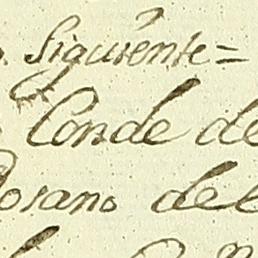 Siguiente=
Conde de
osano de